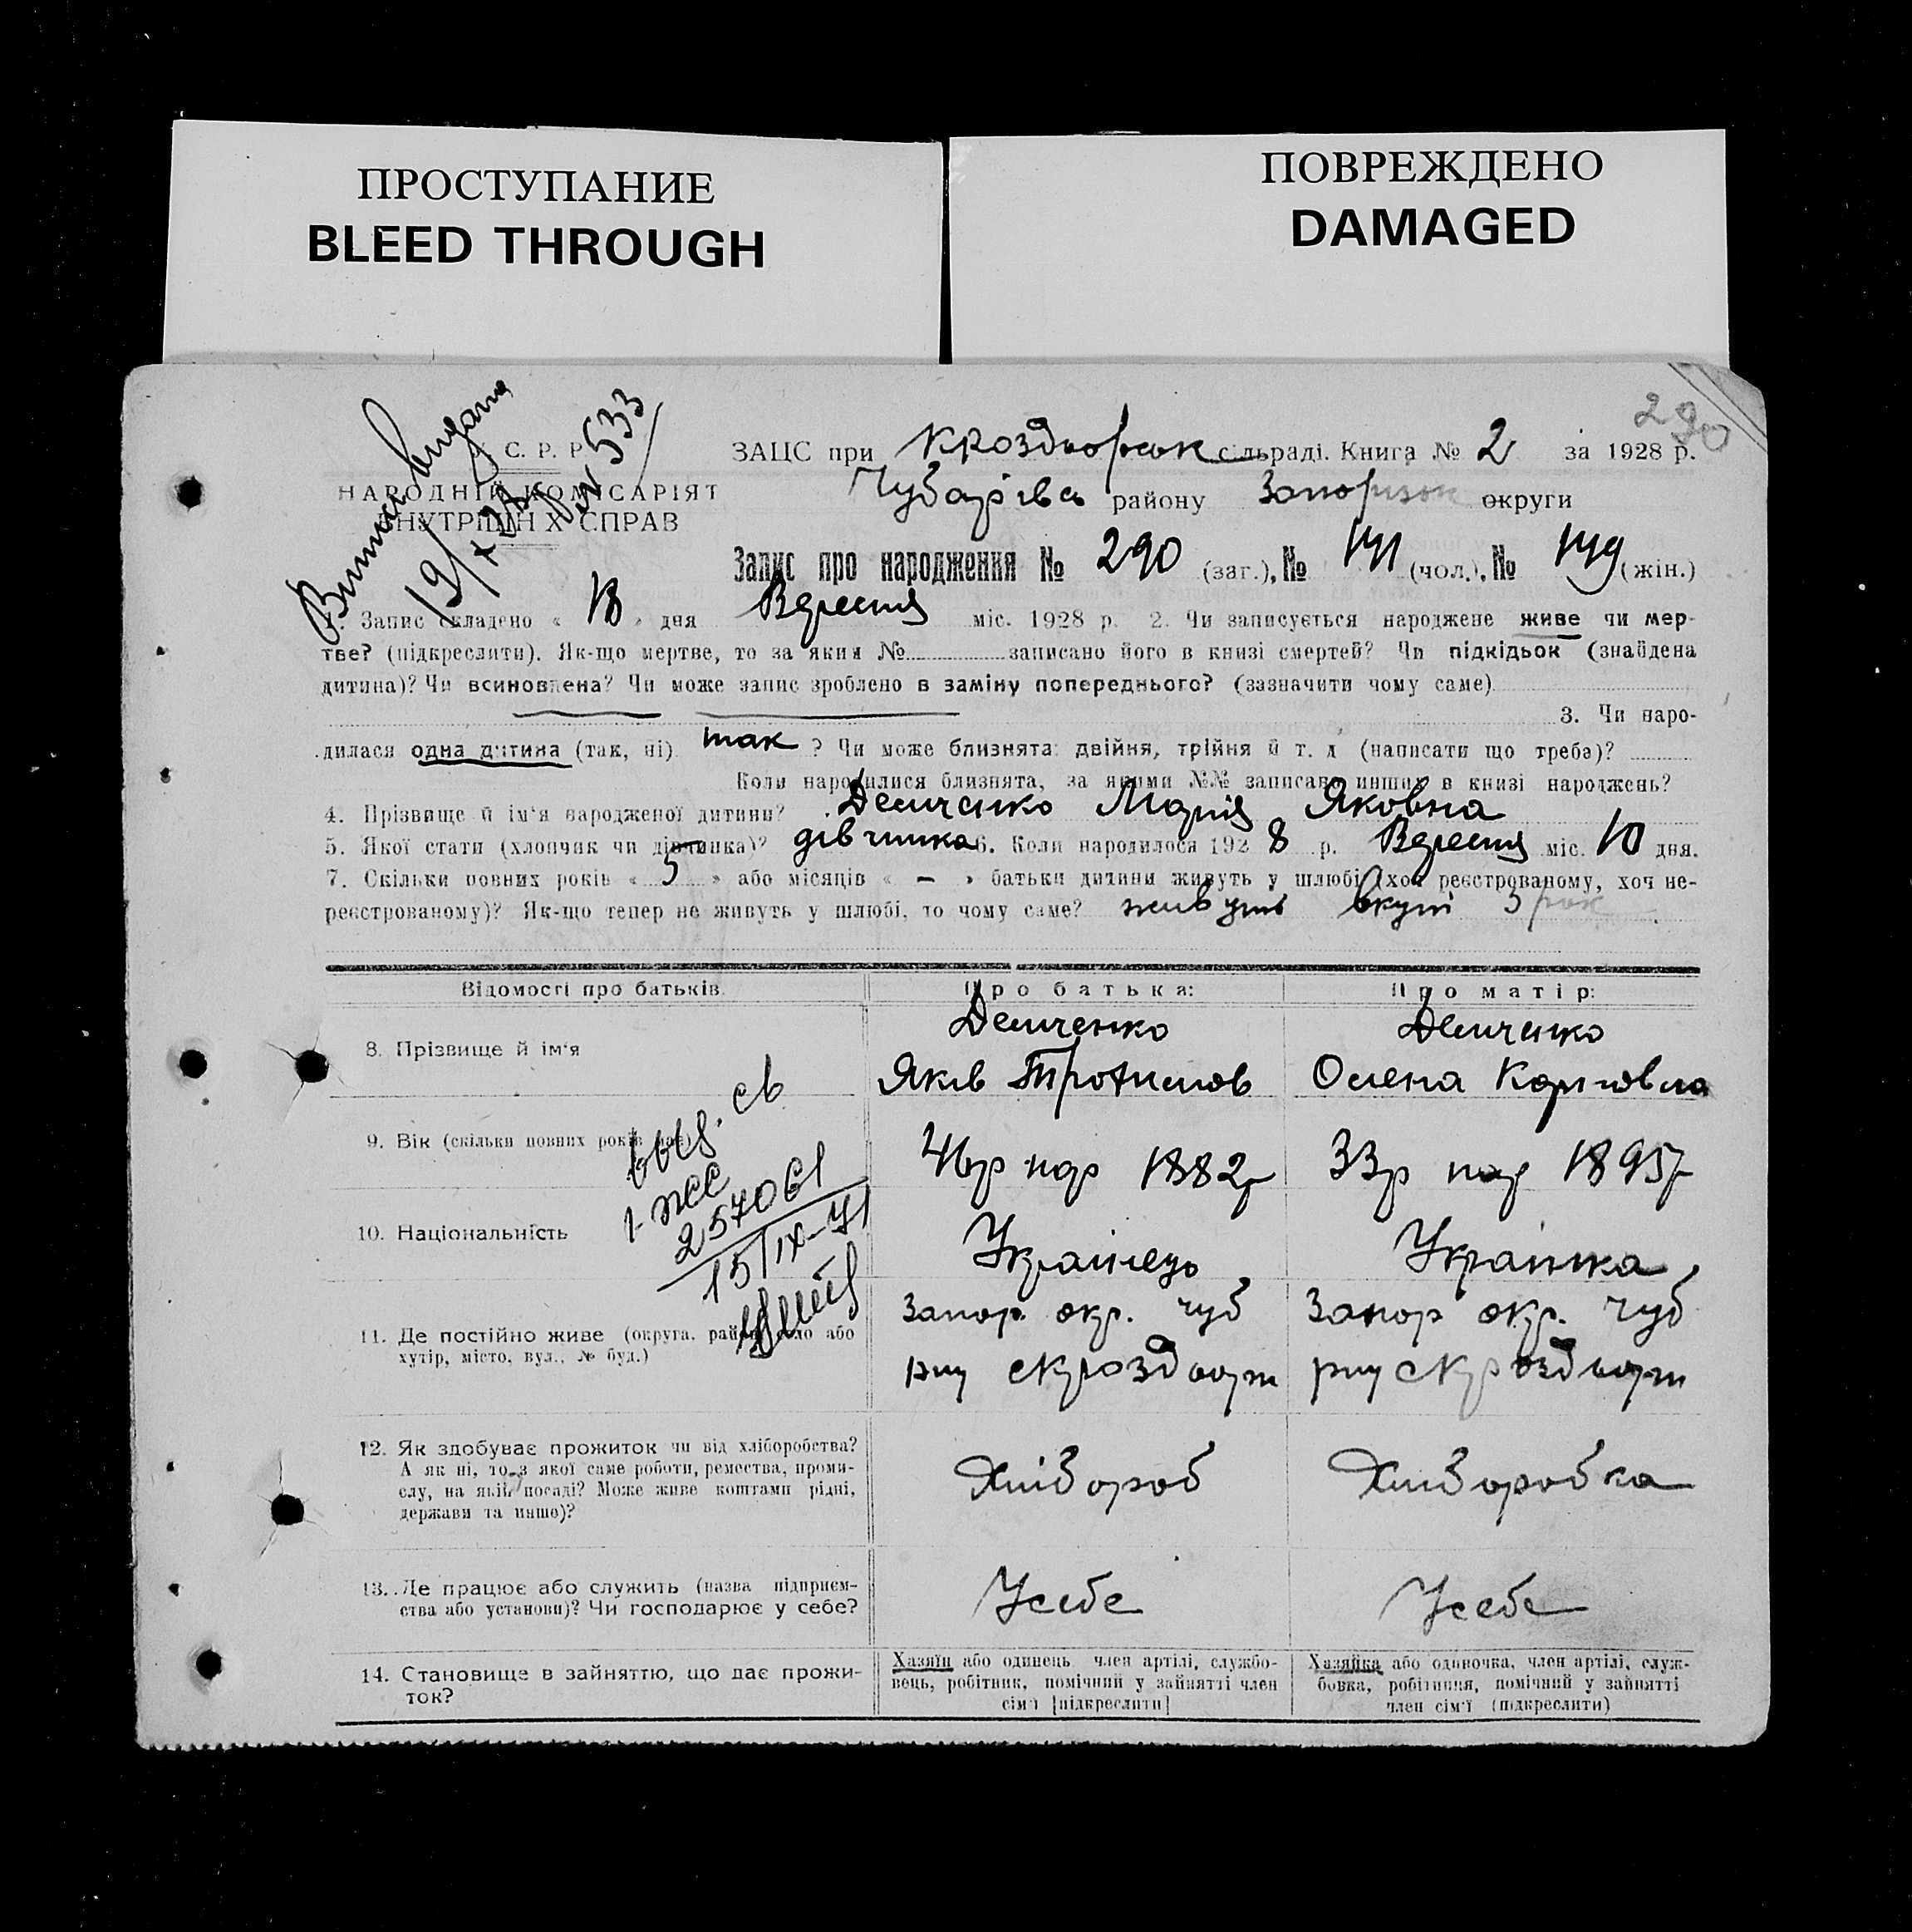 ПРОСТУПАНИЕ
BLEED THROUGH
ПОВРЕЖДЕНО
DAMAGED
290
Витяг видано
19/X 28 р
№ 533
С. Р. Р.
НАРОДНІЙ КОМІСАРІЯТ
ВНУТРІШНІХ СПРАВ
ЗАЦС при Кроздворськ сільраді. Книга № 2 за 1928 р.
Чубарівсь району Запорізьк округи
Запис про народження № 290 (заг.), № 141 (чол.), № 149 (жін.)
1. Запис складено « 18 » дня Вересня міс. 1928 р. 2. Чи записується народжене живе чи мер-
тве? (підкреслити). Як-що мертве, то за яким № записано його в книзі смертей? Чи підкідьок (знайдена
дитина)? Чи всиновлена? Чи може запис зроблено в заміну попереднього? (зазначити чому саме)
3. Чи наро-
дилася одна дитина (так, ні) так ? Чи може близнята: двійня, трійня й т. д (написати що треба)?
Коли народилися близнята, за якими №№ записано инших в книзі народжень?
4. Прізвище й ім'я народженої дитини? Демченко Марія Яковна
5. Якої стати (хлопчик чи дівчинка)? дівчинка 6. Коли народилося 1928 р. Вересня міс. 10 дня.
7. Скільки повних років « 5 » або місяців « – » батьки дитини живуть у шлюбі (хоч реєстрованому, хоч не-
реєстрованому)? Як-що тепер не живуть у шлюбі, то чому саме? живуть вкупі 5 рок
Відомості про батьків
Про батька:
Про матір:
8. Прізвище й ім'я
Демченко
Яків Трохимов
Демченко
Олена Карповна
9. Вік (скільки повних років має)
46р нар 1882р
33р нар 1895р
выд. св
1-ЖС
257061
15/IX-71
10. Національність
Українець
Українка
11. Де постійно живе (округа, район, село або
хутір, місто, вул., № буд.)
Запор. окр. Чуб
рну с Кроздворк
Запор окр. Чуб
рну с Кроздворк
12. Як здобуває прожиток чи від хліборобства?
А як ні, то з якої саме роботи, ремества, проми-
слу, на якій посаді? Може живе коштами рідні,
держави та инше)?
Хлібороб
Хліборобка
13. Де працює або служить (назва підприєм-
ства або установи)? Чи господарює у себе?
У себе
У себе
14. Становище в зайняттю, що дає прожи-
ток?
Хазяїн або одинець, член артілі, службо-
вець, робітник, помічний у зайнятті член
сім'ї [підкреслити]
Хазяйка або одиночка, член артілі, служ-
бовка, робітниця, помічний у зайнятті
член сім'ї (підкреслити)